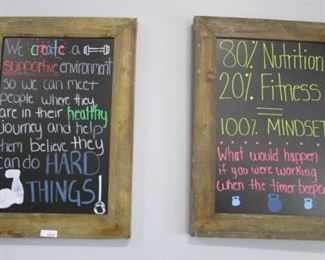 We create a
supportive environment
so we can meet
people where they
are in their healthy
journey and help
them believe they
can do HARD
THINGS!
80% Nutrition
20% Fitness
=
100% MINDSET
What would happen
if you were working
when the timer beeped